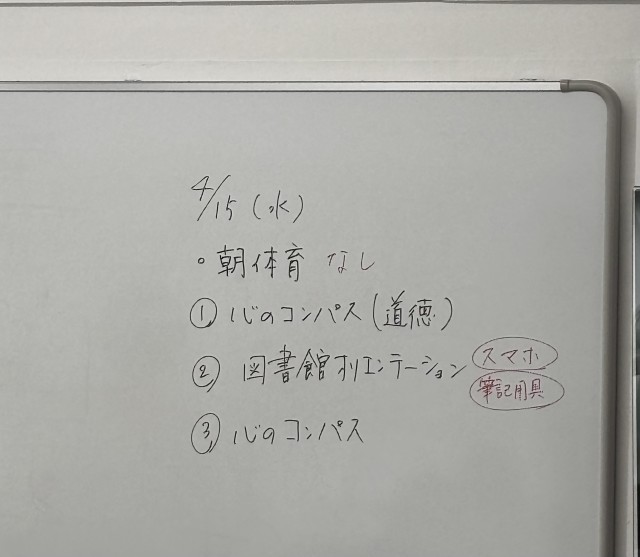 4/15(水)
・朝体育 なし
① 心のコンパス(道徳)
② 図書館オリエンテーション スマホ
筆記用具
③ 心のコンパス